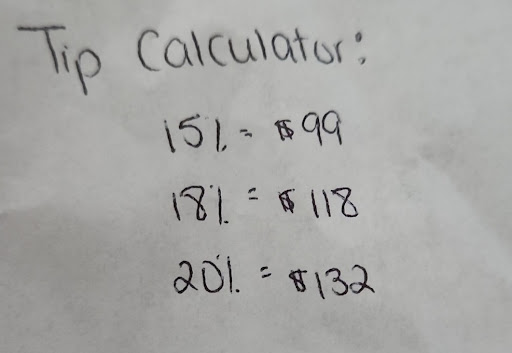 Tip Calculator:
15% = $99
18% = $118
20% = $132